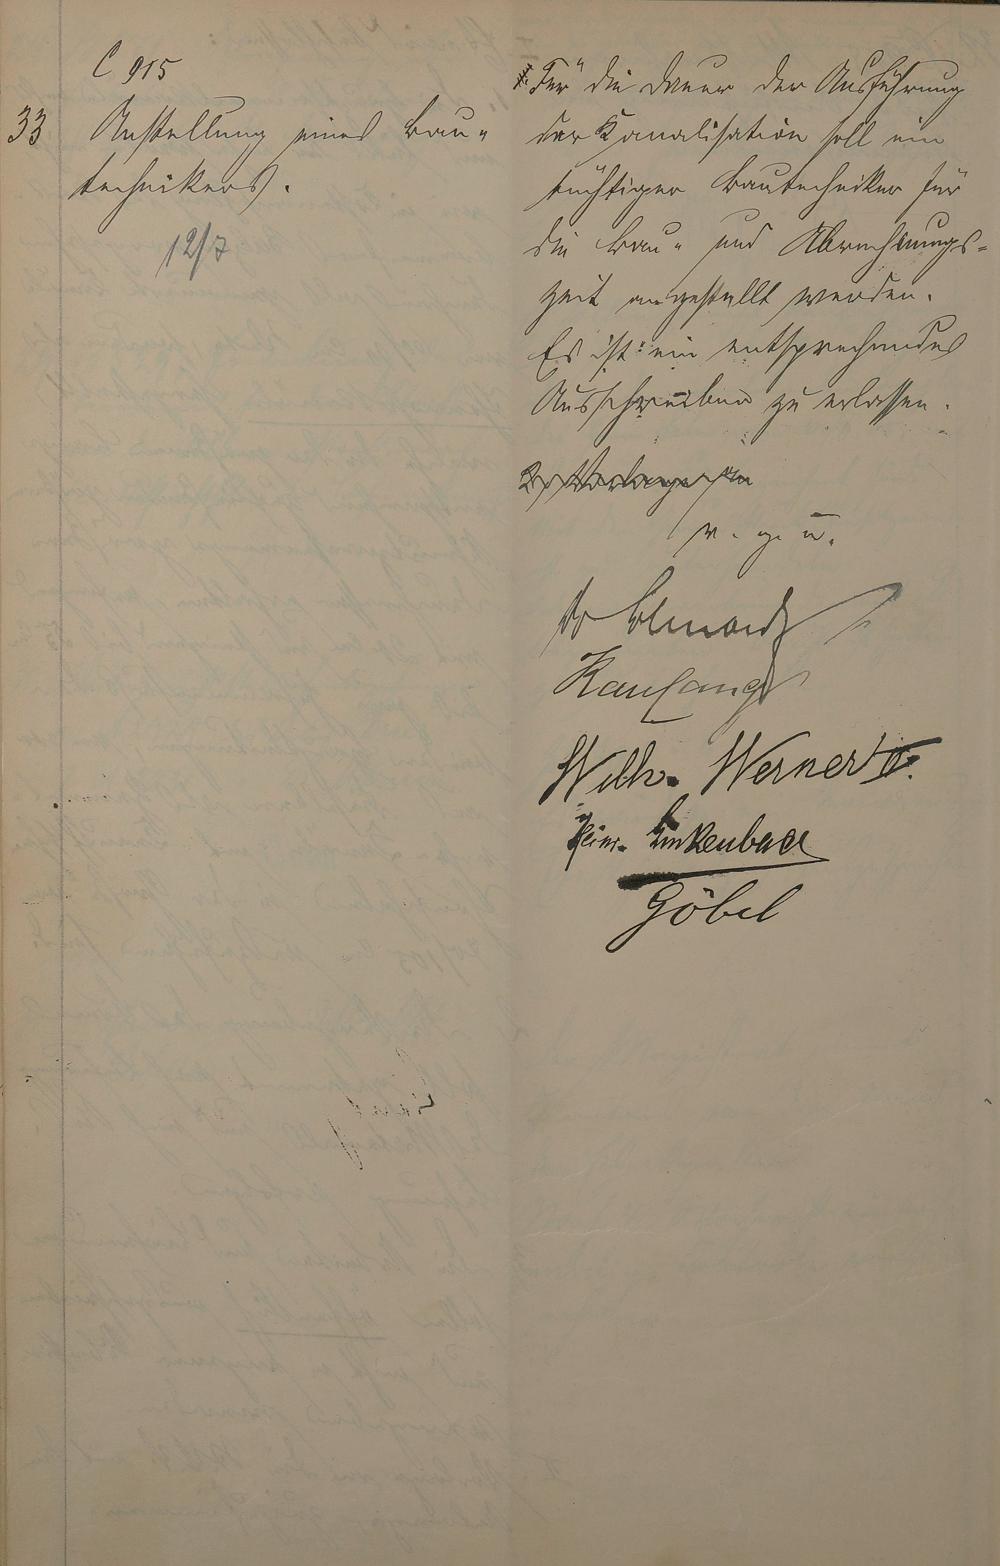 C 915
33 Anstellung eines Bau-
technikers.
12/7
Für die Dauer der Ausführung
der Kanalisation soll ein
tüchtiger Bautechniker für
die Bau- und Abrechnungs-
zeit angestellt werden.
Es ist ein entsprechendes
Ausschreiben zu erlassen.
v. g. u.
Wilh. Werner II.
Heinr. Linkenbach
Göbel